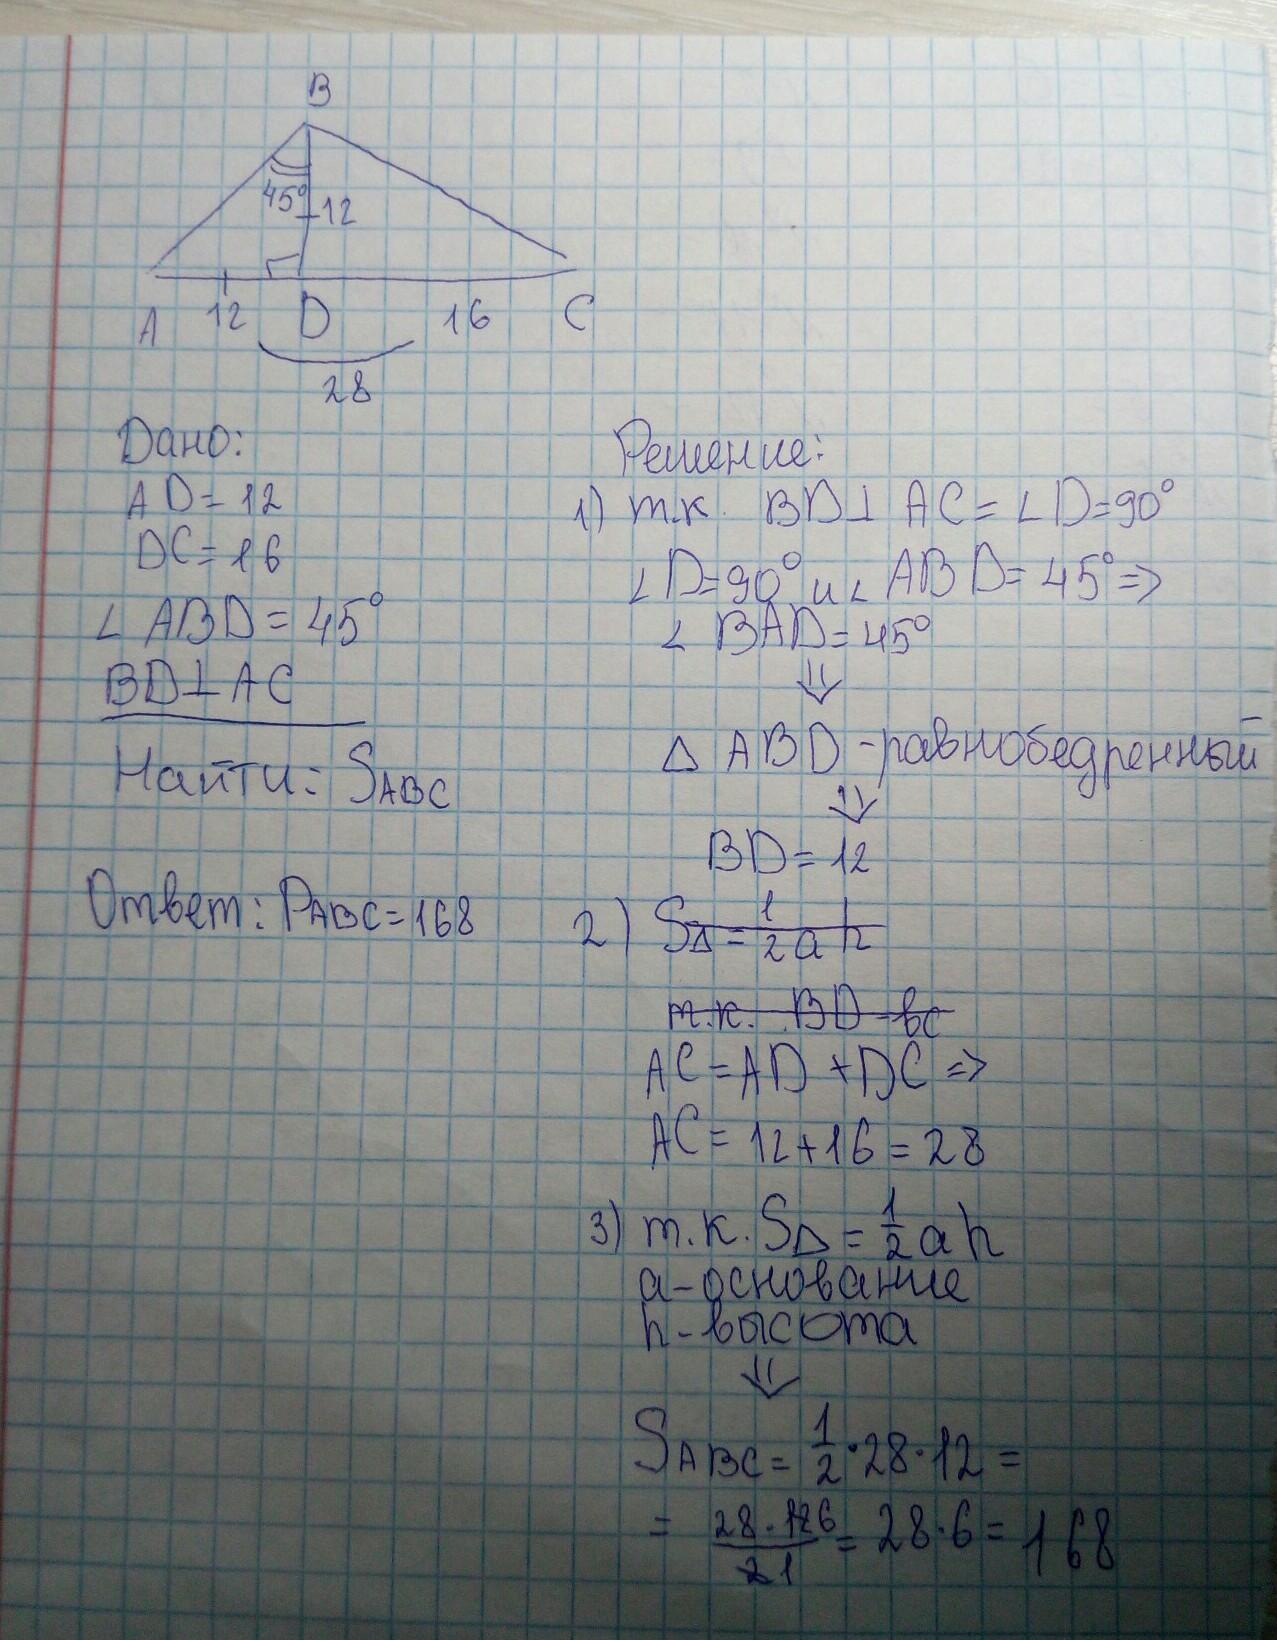 B
45° 12
A 12 D 16 C
28
Дано:
AD=12
DC=16
∠ ABD=45°
BD⊥AC
Найти: SABC
Ответ: PABC=168
Решение:
1) т.к. BD⊥ AC = ∠D=90°
∠D=90° и ∠ABD=45° =>
∠ BAD=45°
⇓
Δ ABD -равнобедренный
⇓
BD=12
2) SΔ = 1/2 a h
т.к. BD-вс
AC=AD+DC =>
AC=12+16=28
3) т.к. SΔ = 1/2 a h
a-основание
h-высота
⇓
SABC= 1/2·28·12=
= 28·12 6/2 1 = 28·6= 168